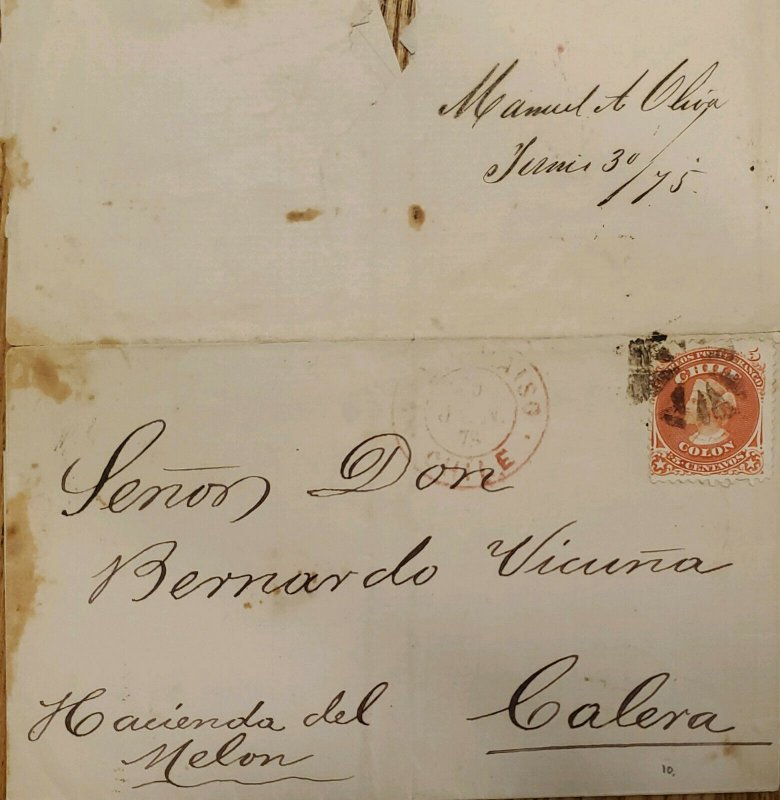 Manuel A Oliva
30/75.
CHILE
5
CHILE
COLON
5 CENTAVOS
Señor Don
Bernardo Vicuña
Hacienda del
Melon
Calera
10.